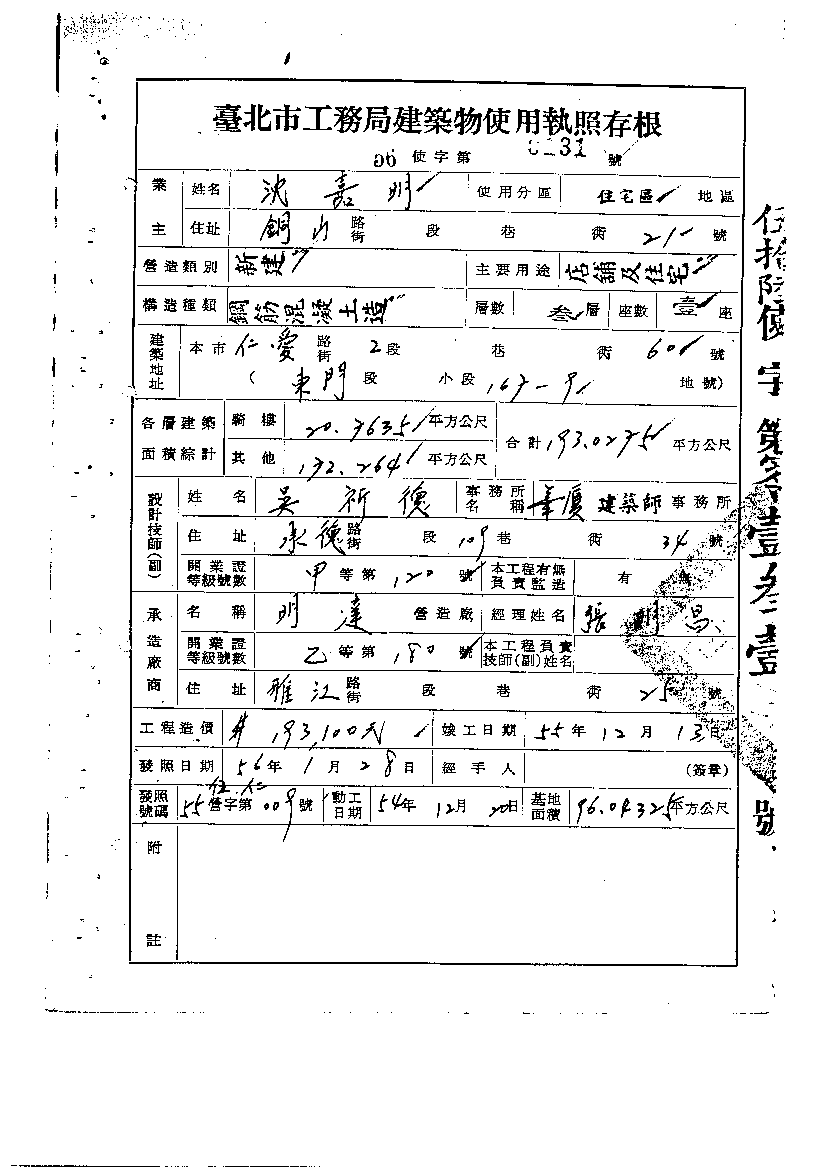 臺北市工務局建築物使用執照存根
56 使字第 0131 號
業主 姓名 沈嘉明 使用分區 住宅區 地區
住址 銅山 路街 段 巷 衖 21 號
營造類別 新建 主要用途 店舖及住宅
構造種類 鋼筋混凝土造 層數 叁層 座數 壹座
建築地址 本市 仁愛 路街 2段 巷 衖 60 號
( 東門 段 小段 167-9 地號)
各層建築面積綜計 騎樓 20.7635 平方公尺 合計 193.0275 平方公尺
其他 172.264 平方公尺
設計技師(副) 姓名 吳祈德 事務所名稱 華廈建築師事務所
住址 承德 路街 段 109 巷 衖 34 號
開業證等級號數 甲等第 120 號 本工程有無負責監造 有 無
承造廠商 名稱 明達 營造廠 經理姓名 張明昌
開業證等級號數 乙等第 180 號 本工程負責技師(副)姓名
住址 雅江 路街 段 巷 衖 25 號
工程造價 # 193,100元 竣工日期 55年12月13日
發照日期 56年1月28日 經手人 (簽章)
發照號碼 55 營字第 009 號 動工日期 54年12月20日 基地面積 96.04325平方公尺
附註
伍拾陸使字第零壹叁壹號